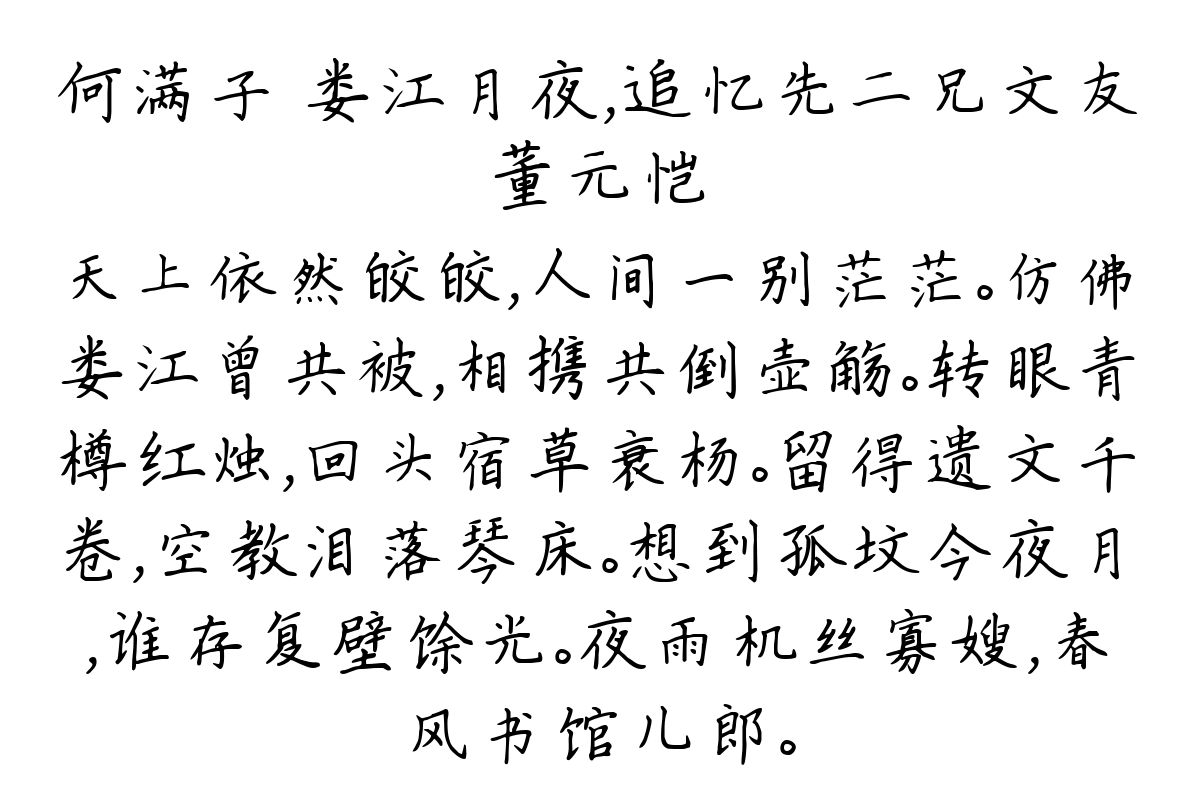 何满子 娄江月夜,追忆先二兄文友
董元恺
天上依然皎皎,人间一别茫茫。仿佛
娄江曾共被,相携共倒壶觞。转眼青
樽红烛,回头宿草衰杨。留得遗文千
卷,空教泪落琴床。想到孤坟今夜月
,谁存复壁馀光。夜雨机丝寡嫂,春
风书馆儿郎。